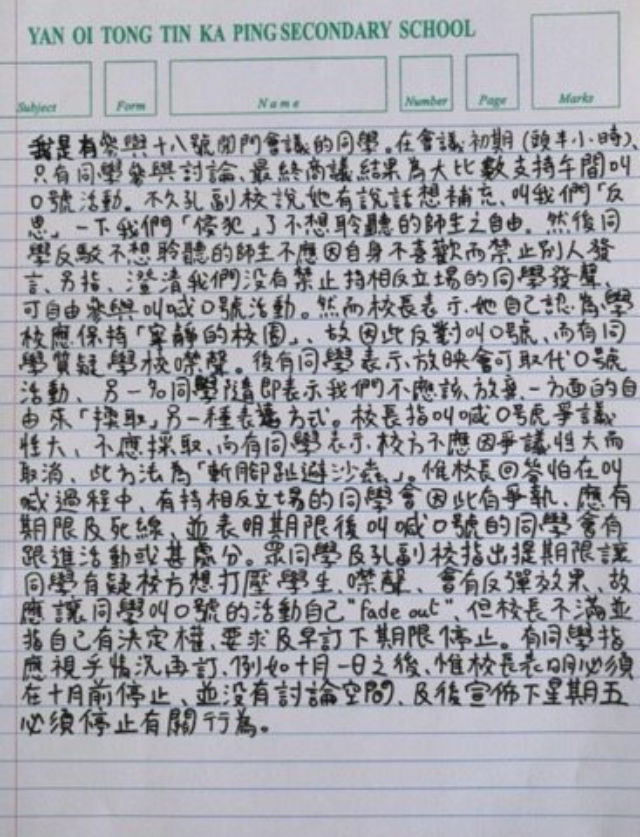 YAN OI TONG TIN KA PING SECONDARY SCHOOL
Subject Form Name Number Page Marks
我是有參與十八號閉門會議的同學。在會議初期（頭半小時）、
只有同學參與討論、最終商議結果為大比數支持午間叫
口號活動。不久孔副校說她有說話想補充、叫我們「反
思」一下我們「侵犯」了不想聆聽的師生之自由。然後同
學反駁不想聆聽的師生不應因自身不喜歡而禁止別人發
言、另指、澄清我們沒有禁止持相反立場的同學發聲、
可自由參與叫喊口號活動。然而校長表示她自己認為學
校應保持「寧靜的校園」、故因此反對叫口號、而有同
學質疑學校噤聲。後有同學表示放映會可取代口號
活動、另一名同學隨即表示我們不應該放棄一方面的自
由來「換取」另一種表達方式。校長指叫喊口號爭議
性大、不應採取、而有同學表示校方不應因爭議性大而
取消、此方法為「斬腳趾避沙蟲」。惟校長回答怕在叫
喊過程中、有持相反立場的同學會因此有爭執、應有
期限及死線、並表明期限後叫喊口號的同學會有
跟進活動或甚處分。眾同學及孔副校指出提期限讓
同學有疑校方想打壓學生、噤聲、會有反彈效果、故
應讓同學叫口號的活動自己"fade out"、但校長不滿並
指自己有決定權、要求及早訂下期限停止。有同學指
應視乎情況再訂、例如十月一日之後、惟校長表明必須
在十月前停止、並沒有討論空間、及後宣佈下星期五
必須停止有關行為。